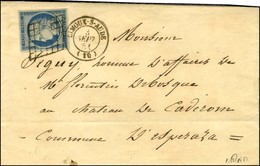 LIMOUX-S-AUDE
3
SEPT
51
(10)
Monsieur
Séguy, homme d'affaires De
Mr florentin Debosque
au chateau De Cadérone
Commune D'espéraza =